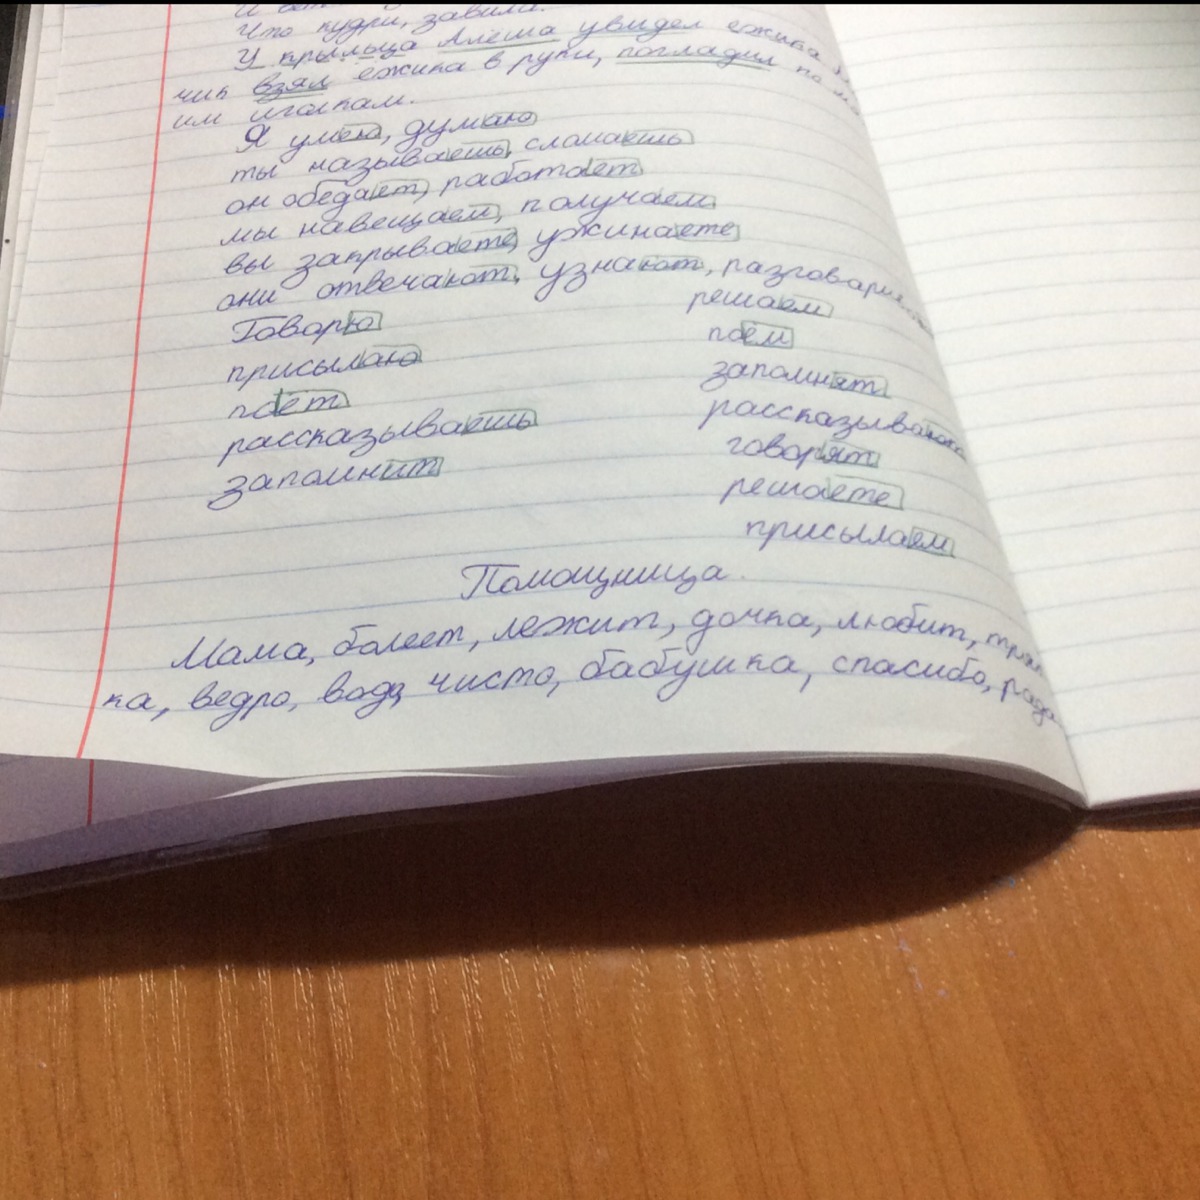 Что кудри, завила.
У крыльца Алеша увидел ежика
чик взял ежика в руки, погладил по
им иголкам.
Я умею, думаю
ты называешь, сломаешь
он обедает, работает
мы навещаем, получаем
вы закрываете, ужинаете
они отвечают, узнают, разговари
Говорю
присылаю
поёт
рассказываешь
запомнит
решаем
поём
запомнят
рассказываю
говорят
решаете
присылаем
Помощница.
Мама, болеет, лежит, дочка, любит, тряп
ка, ведро, вода, чисто, бабушка, спасибо, рада